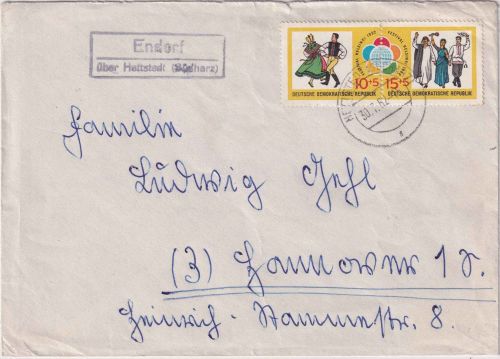 Endorf
über Hettstedt (Südharz)
FESTIVAL HELSINKI 1962
10+5
15+5
DEUTSCHE DEMOKRATISCHE REPUBLIK
DEUTSCHE DEMOKRATISCHE REPUBLIK
30.7.62
Familie
Ludwig Gehl
(3) Hannover 1 S.
Heinrich-Stamme str. 8.